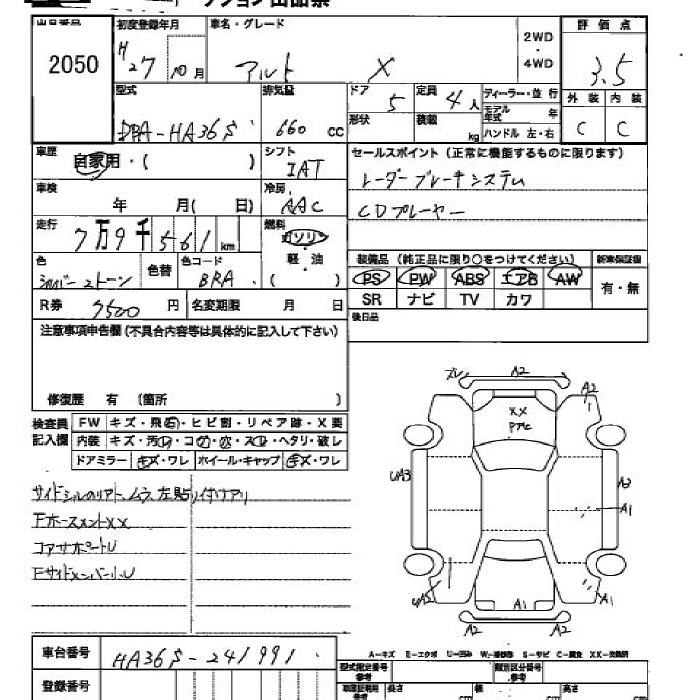 出品番号 初度登録年月 車名・グレード 2WD・4WD 評価点
2050 H27 10月 アルト X 3.5
型式 排気量 ドア 5 定員 4人 ディーラー・並行 外装 内装
DBA-HA36S 660 CC 形状 積載 kg モデル年式 年 C C
ハンドル 左・右
車歴 自家用・( ) シフト IAT セールスポイント(正常に機能するものに限ります)
車検 年 月( 日) 冷房 AAC レーダーブレーキシステム
走行 7万9千561km 燃料 ガソリン・軽・油 ( ) CDプレーヤー
色 シルバー2トーン 色替 色コード BRA 装備品(純正品に限り○をつけてください) 新車保証書
PS PW ABS エアB AW 有・無
R券 7500円 名変期限 月 日 SR ナビ TV カワ
注意事項申告欄(不具合内容等は具体的に記入して下さい) 後日品
修復歴 有(箇所 )
検査員記入欄 FW キズ・飛石・ヒビ割・リペア跡・X要
内装 キズ・汚れ・コゲ・穴・スレ・ヘタリ・破レ
ドアミラー キズ・ワレ ホイール・キャップ キズ・ワレ
サイドシルのリアト、ムラ、左貼り付けアリ
FホースメントXX
コアサポートU
Fサイドメンバー小U
A2
A2
XX
UA3
A2
A1
UA2
A1
A1
A2
A2
A-キズ E-エクボ U-凹み W-補修跡 S-サビ C-腐食 XX-交換済
車台番号 HA36S-241991 型式指定番号 参考 類別区分番号 参考
登録番号 長さ cm 幅 cm 高さ